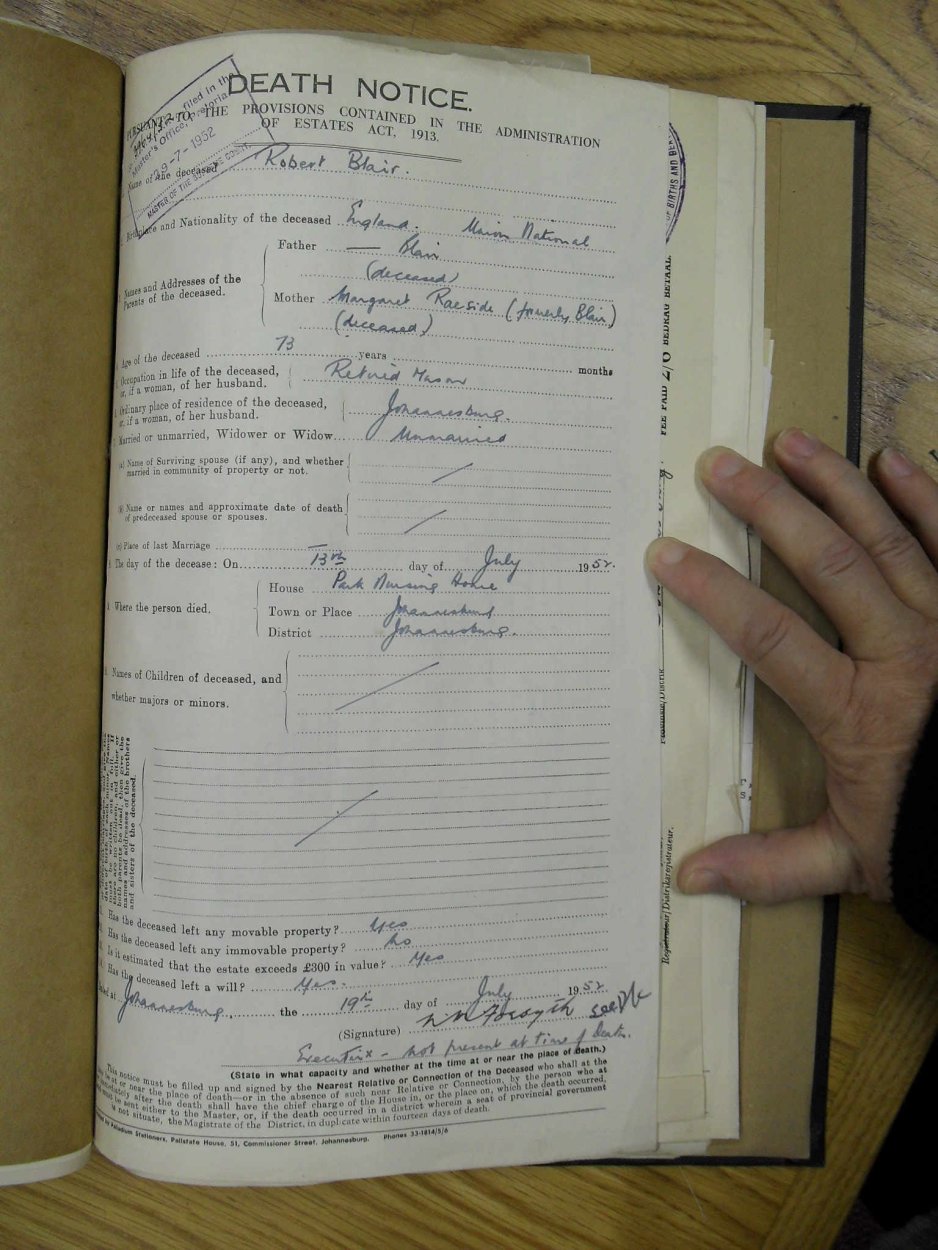 DEATH NOTICE.
PURSUANT TO THE PROVISIONS CONTAINED IN THE ADMINISTRATION
OF ESTATES ACT, 1913.
filed in the
Master's Office, Pretoria
29-7-1952
MASTER OF THE SUPREME COURT
Name of the deceased Robert Blair.
Birthplace and Nationality of the deceased England. Union National
Names and Addresses of the
Parents of the deceased.
Father — Blair
(deceased)
Mother Margaret Raeside (formerly Blair)
(deceased)
Age of the deceased 73 years months
Occupation in life of the deceased,
or, if a woman, of her husband.
Retired Mason
Ordinary place of residence of the deceased,
or, if a woman, of her husband.
Johannesburg.
Married or unmarried, Widower or Widow Unmarried
(a) Name of Surviving spouse (if any), and whether
married in community of property or not.
(b) Name or names and approximate date of death
of predeceased spouse or spouses.
(c) Place of last Marriage —
The day of the decease: On 13th day of July 1952.
Where the person died.
House Park Nursing Home
Town or Place Johannesburg
District Johannesburg.
Names of Children of deceased, and
whether majors or minors.
there are no children, and either or
both parents be dead, then give the
names and addresses of the brothers
and sisters of the deceased.
Has the deceased left any movable property? Yes
Has the deceased left any immovable property? No
Is it estimated that the estate exceeds £300 in value? Yes
Has the deceased left a will? Yes.
Dated at Johannesburg. the 19th day of July 1952
(Signature) Forsyth
Executrix - not present at time of death.
(State in what capacity and whether at the time at or near the place of death.)
This notice must be filled up and signed by the Nearest Relative or Connection of the Deceased who shall at the
be at or near the place of death—or in the absence of such near Relative or Connection, by the person who at
immediately after the death shall have the chief charge of the House in, or the place on, which the death occurred,
must be sent either to the Master, or, if the death occurred in a district wherein a seat of provincial government
is not situate, the Magistrate of the District, in duplicate within fourteen days of death.
Palladium Stationers, Pallstate House, 51, Commissioner Street, Johannesburg. Phones 33-1814/5/6
OF BIRTHS AND
FEE PAID 2/6 BEDRAG BETAAL
Provinsie/Distrik
Registrateur/Distriksregistrateur.